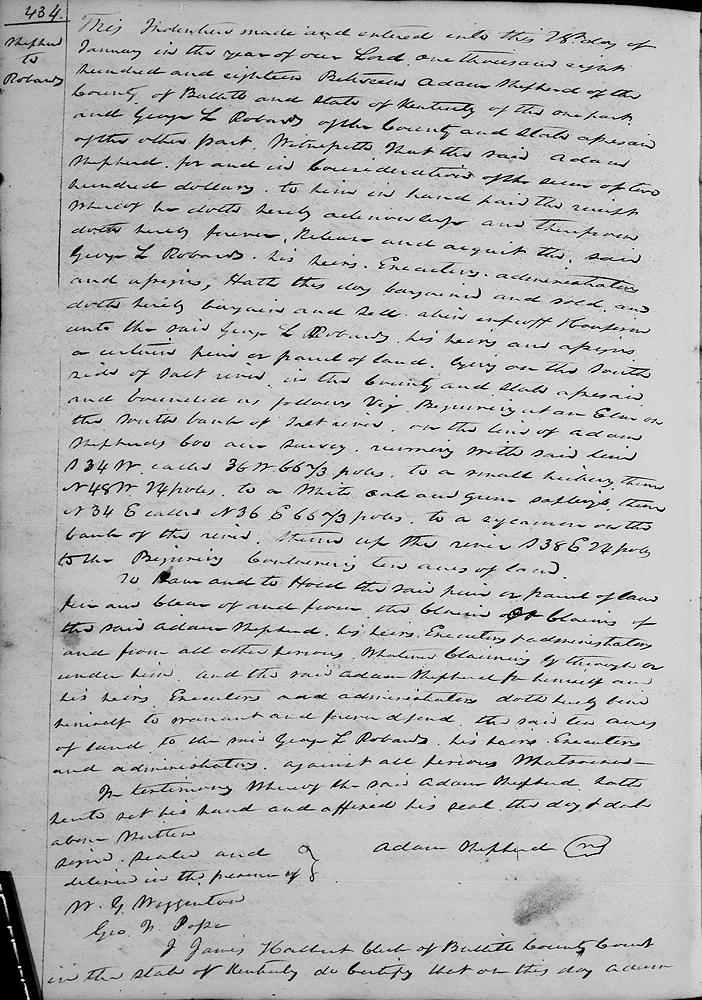 434.
Shepherd
to
Robards
This Indenture made and entered into this 28th day of
January in the year of our Lord one thousand eight
hundred and eighteen Between Adam Shepherd of the
County of Bullitt and State of Kentucky of the one part
and George L Robards of the County and State aforesaid
of the other part. Witnesseth That the said Adam
Shepherd for and in Consideration of the sum of two
hundred dollars to him in hand paid the receipt
Whereof he doth hereby acknowledge and therefrom
doth hereby forever, Release and acquit the said
George L Robards his heirs. Executors. administrators
and assigns, Hath this day bargained and sold, and
doth hereby bargain and sell alien enfeoff & Confirm
unto the said George L Robards, his heirs and assigns
a certain peice or parcel of land. lying on the South
side of Salt river, in the County and State aforesaid
and bounded as follows Viz. Beginning at an Elm on
the South bank of Salt river. on the line of Adam
Shepherds 600 acre survey. running with said line
S 34 W. called 36 W 66 2/3 poles. to a small hickory, thence
N 48 W. 24 poles. to a White oak and Gum saplings, thence
N 34 E called N 36 E 66 2/3 poles, to a sycamore on the
bank of the river, thence up the river S 38 E 24 poles
to the Beginning Containing ten acres of land.
To Have and to Hold the said peice or parcel of land
free and Clear of and from the Claim or Claims of
the said Adam Shepherd, his heirs, Executors & administrators
and from all other persons Whatever Claiming by through or
under him, and the said Adam Shepherd for himself and
his heirs Executors and administrators doth hereby bind
himself to warrant and forever defend the said ten acres
of land, to the said George L Robards, his heirs. Executors
and administrators. against all persons Whatsoever
In testimony Whereof the said Adam Shepherd hath
hereto set his hand and affixed his seal the day & date
above Written
Signed. sealed and
delivered in the presence of
Adam Shepherd
W. Y. Wigginton
Geo. F. Pope
I James Halbert Clerk of Bullitt County Court
in the State of Kentucky do Certify that on this day Adam